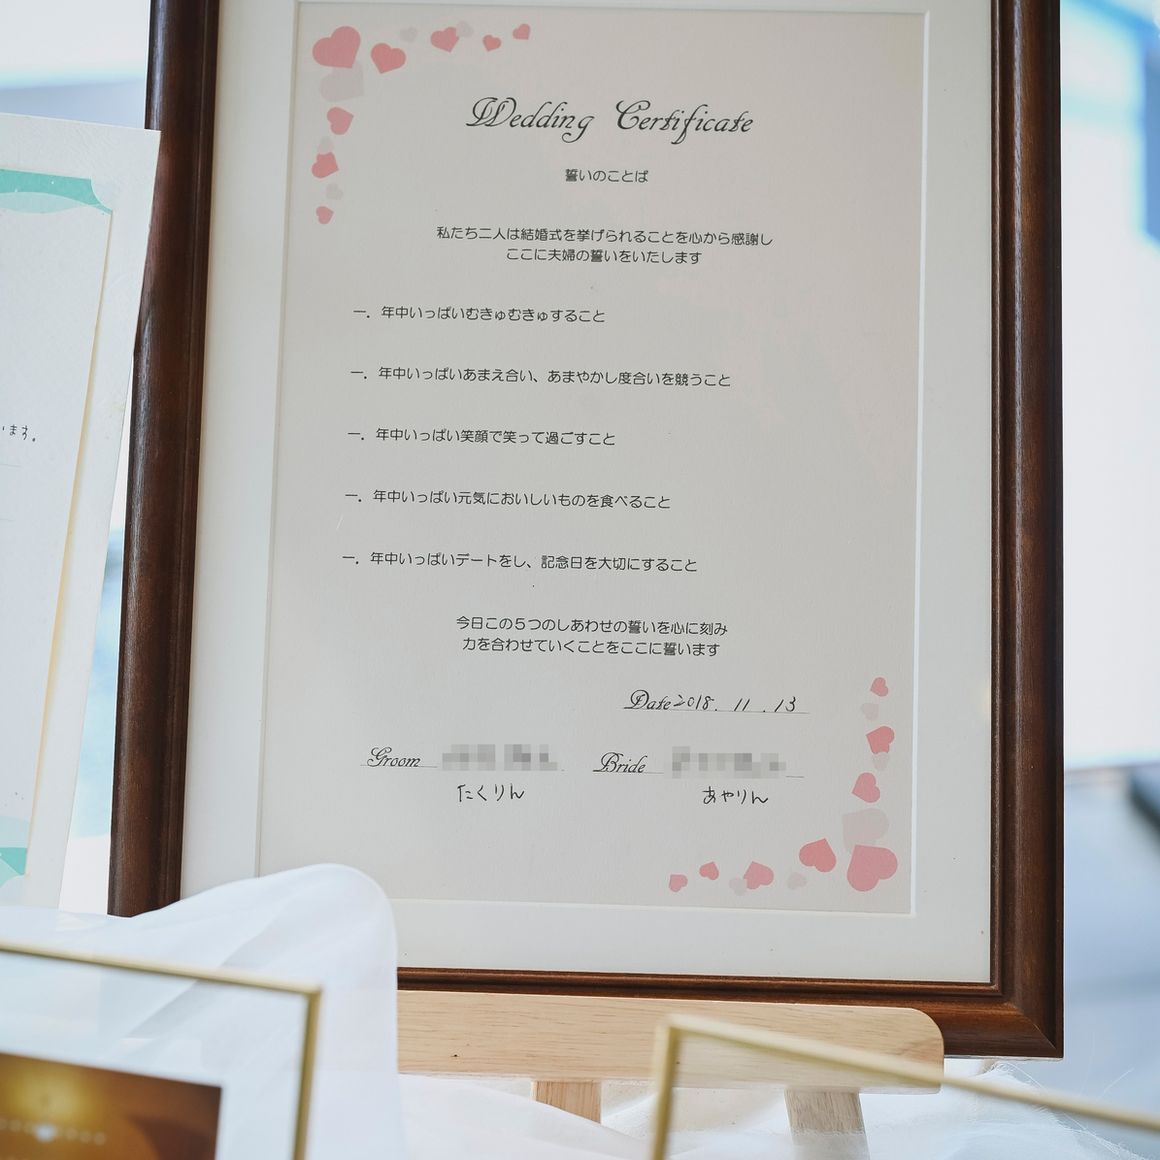 Wedding Certificate
誓いのことば
私たち二人は結婚式を挙げられることを心から感謝し
ここに夫婦の誓いをいたします
一．年中いっぱいむきゅむきゅすること
一．年中いっぱいあまえ合い、あまやかし度合いを競うこと
一．年中いっぱい笑顔で笑って過ごすこと
一．年中いっぱい元気においしいものを食べること
一．年中いっぱいデートをし、記念日を大切にすること
今日この５つのしあわせの誓いを心に刻み
力を合わせていくことをここに誓います
Date 2018. 11. 13
Groom Bride
たくりん あやりん
います。